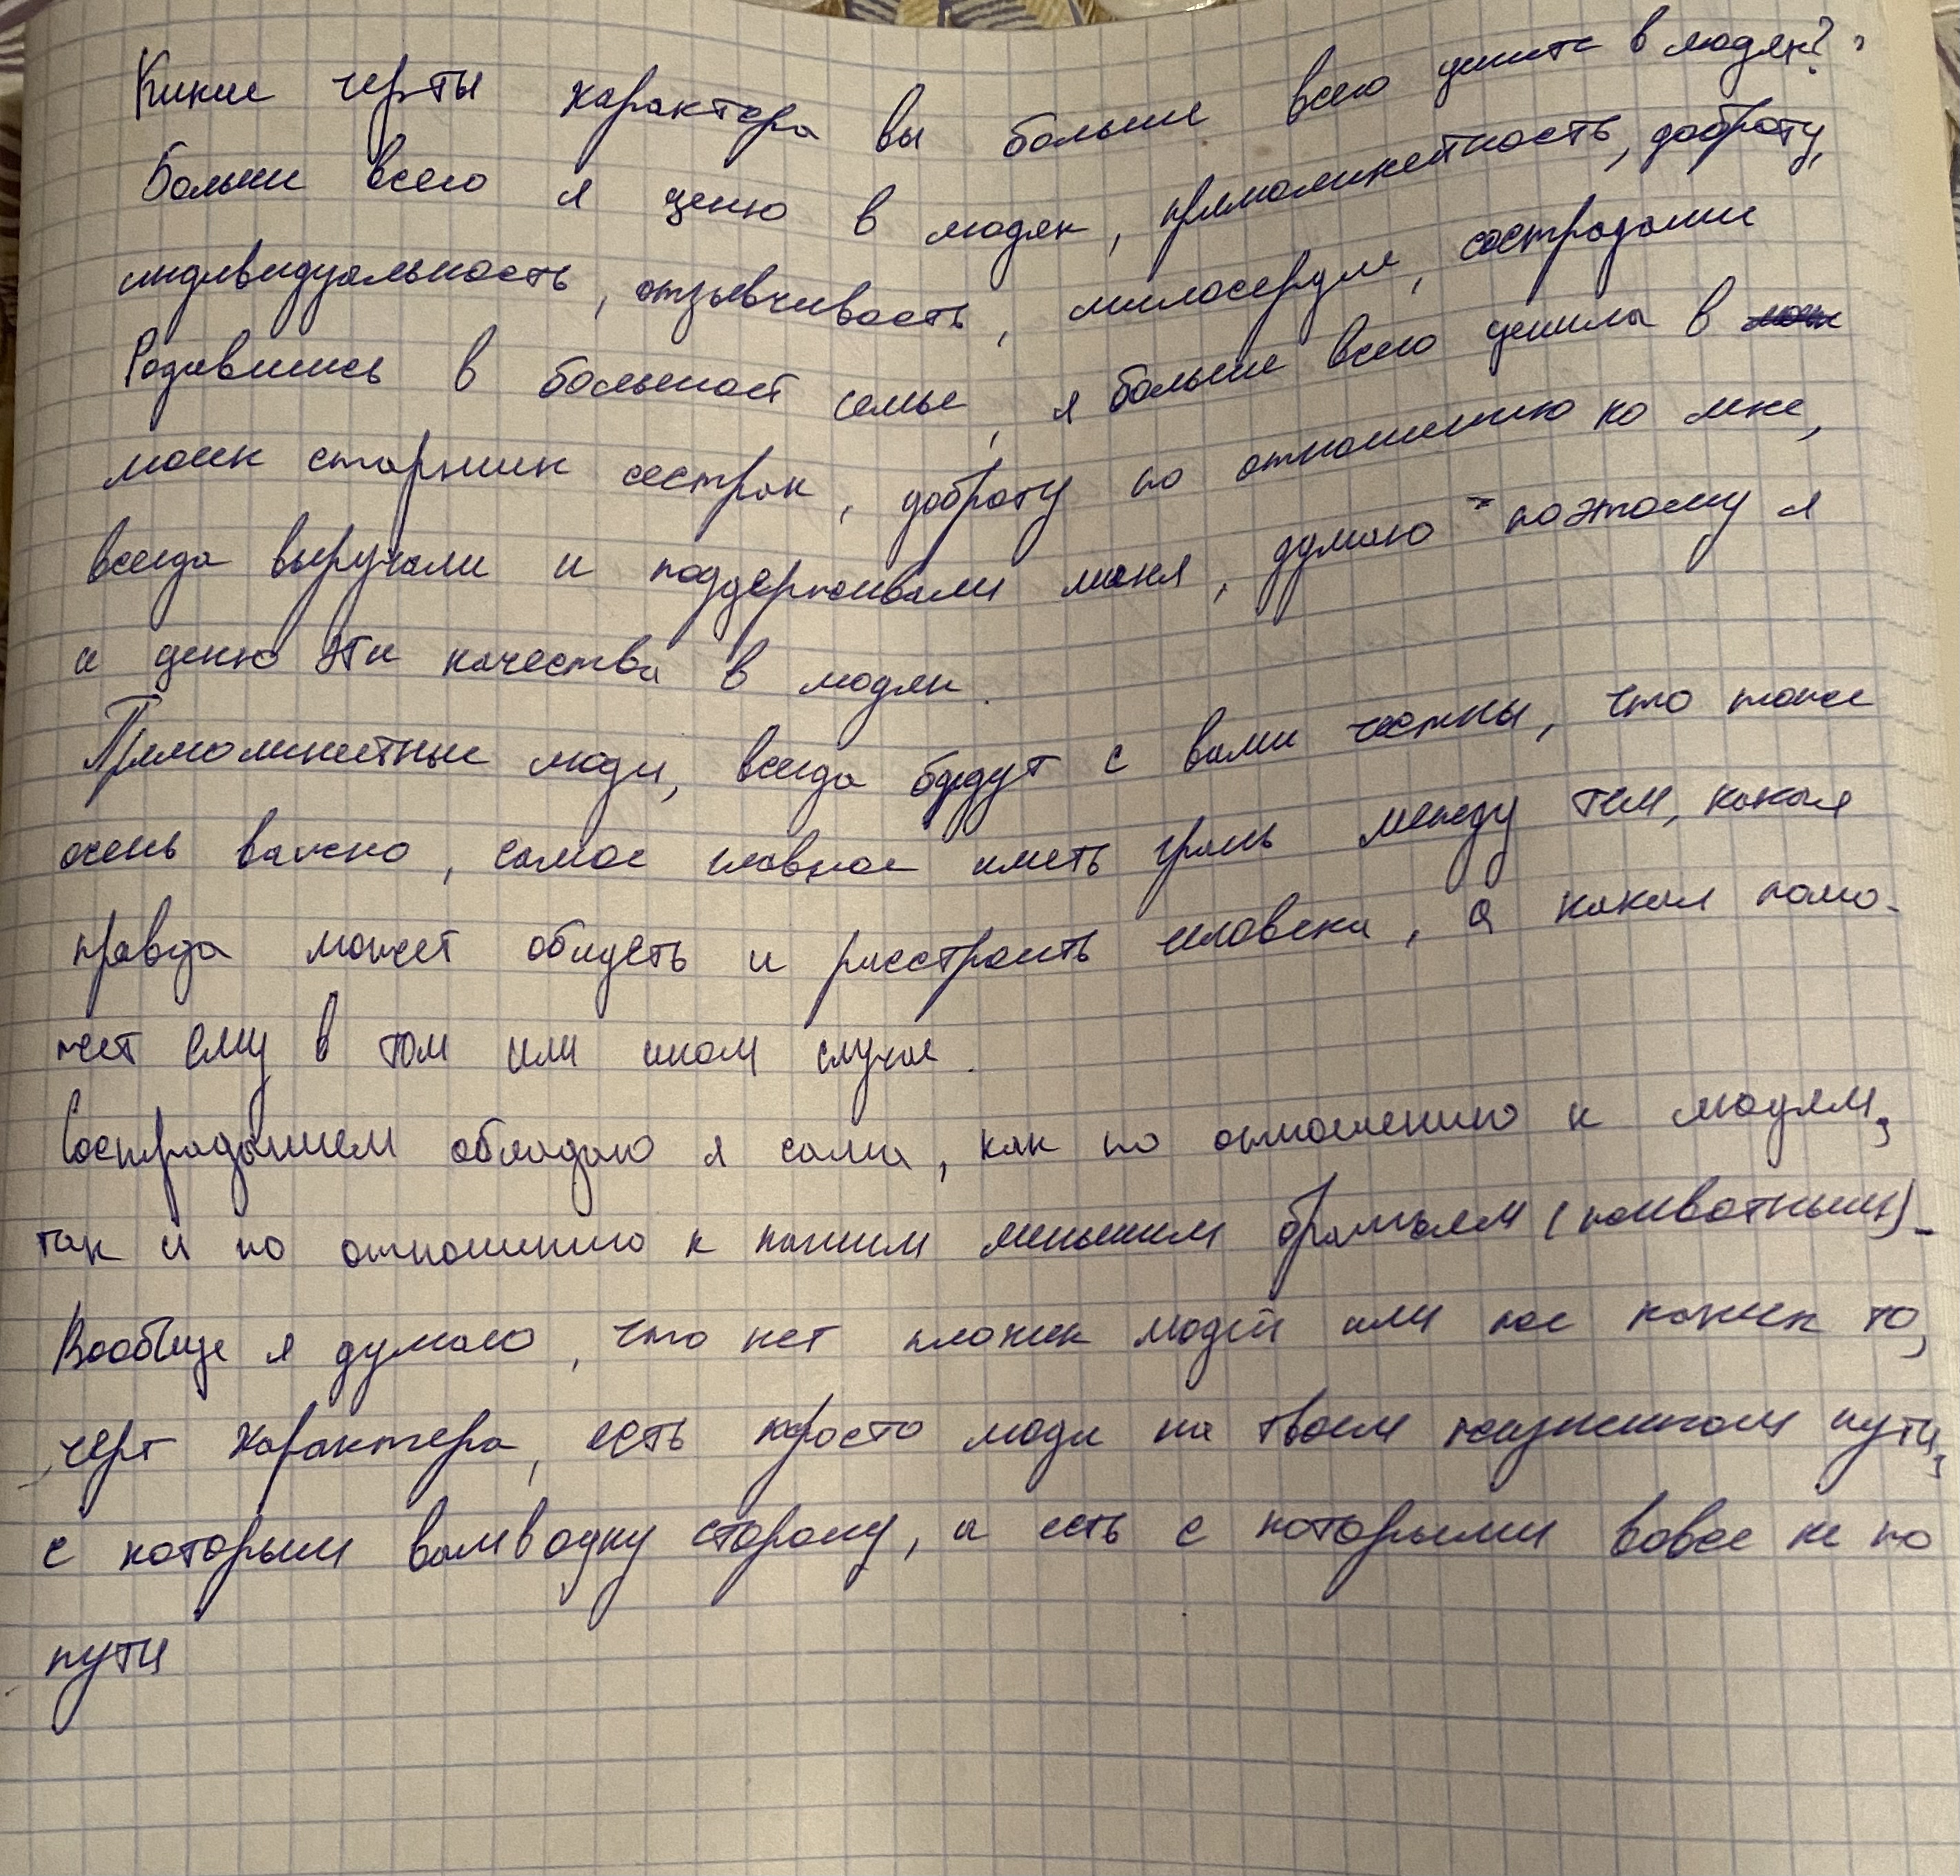 Какие черты характера вы больше всего цените в людях?
Больше всего я ценю в людях, прямолинейность, доброту,
индивидуальность, отзывчивость, милосердие, сострадание
Родившись в большой семье, я больше всего ценила в
моих старших сестрах, доброту по отношению ко мне,
всегда выручали и поддерживали меня, думаю поэтому я
и ценю эти качества в людях.
Прямолинейные люди, всегда будут с вами честны, что тоже
очень важно, самое главное иметь грань между тем, какая
правда может обидеть и расстроить человека, а какая помо-
жет ему в том или ином случае.
Состраданием обладаю я сама, как по отношению к людям,
так и по отношению к нашим меньшим братьям (животным).
Вообще я думаю, что нет плохих людей или же каких то,
черт характера, есть просто люди на твоем жизненном пути,
с которыми вам в одну сторону, а есть с которыми вовсе не по
пути